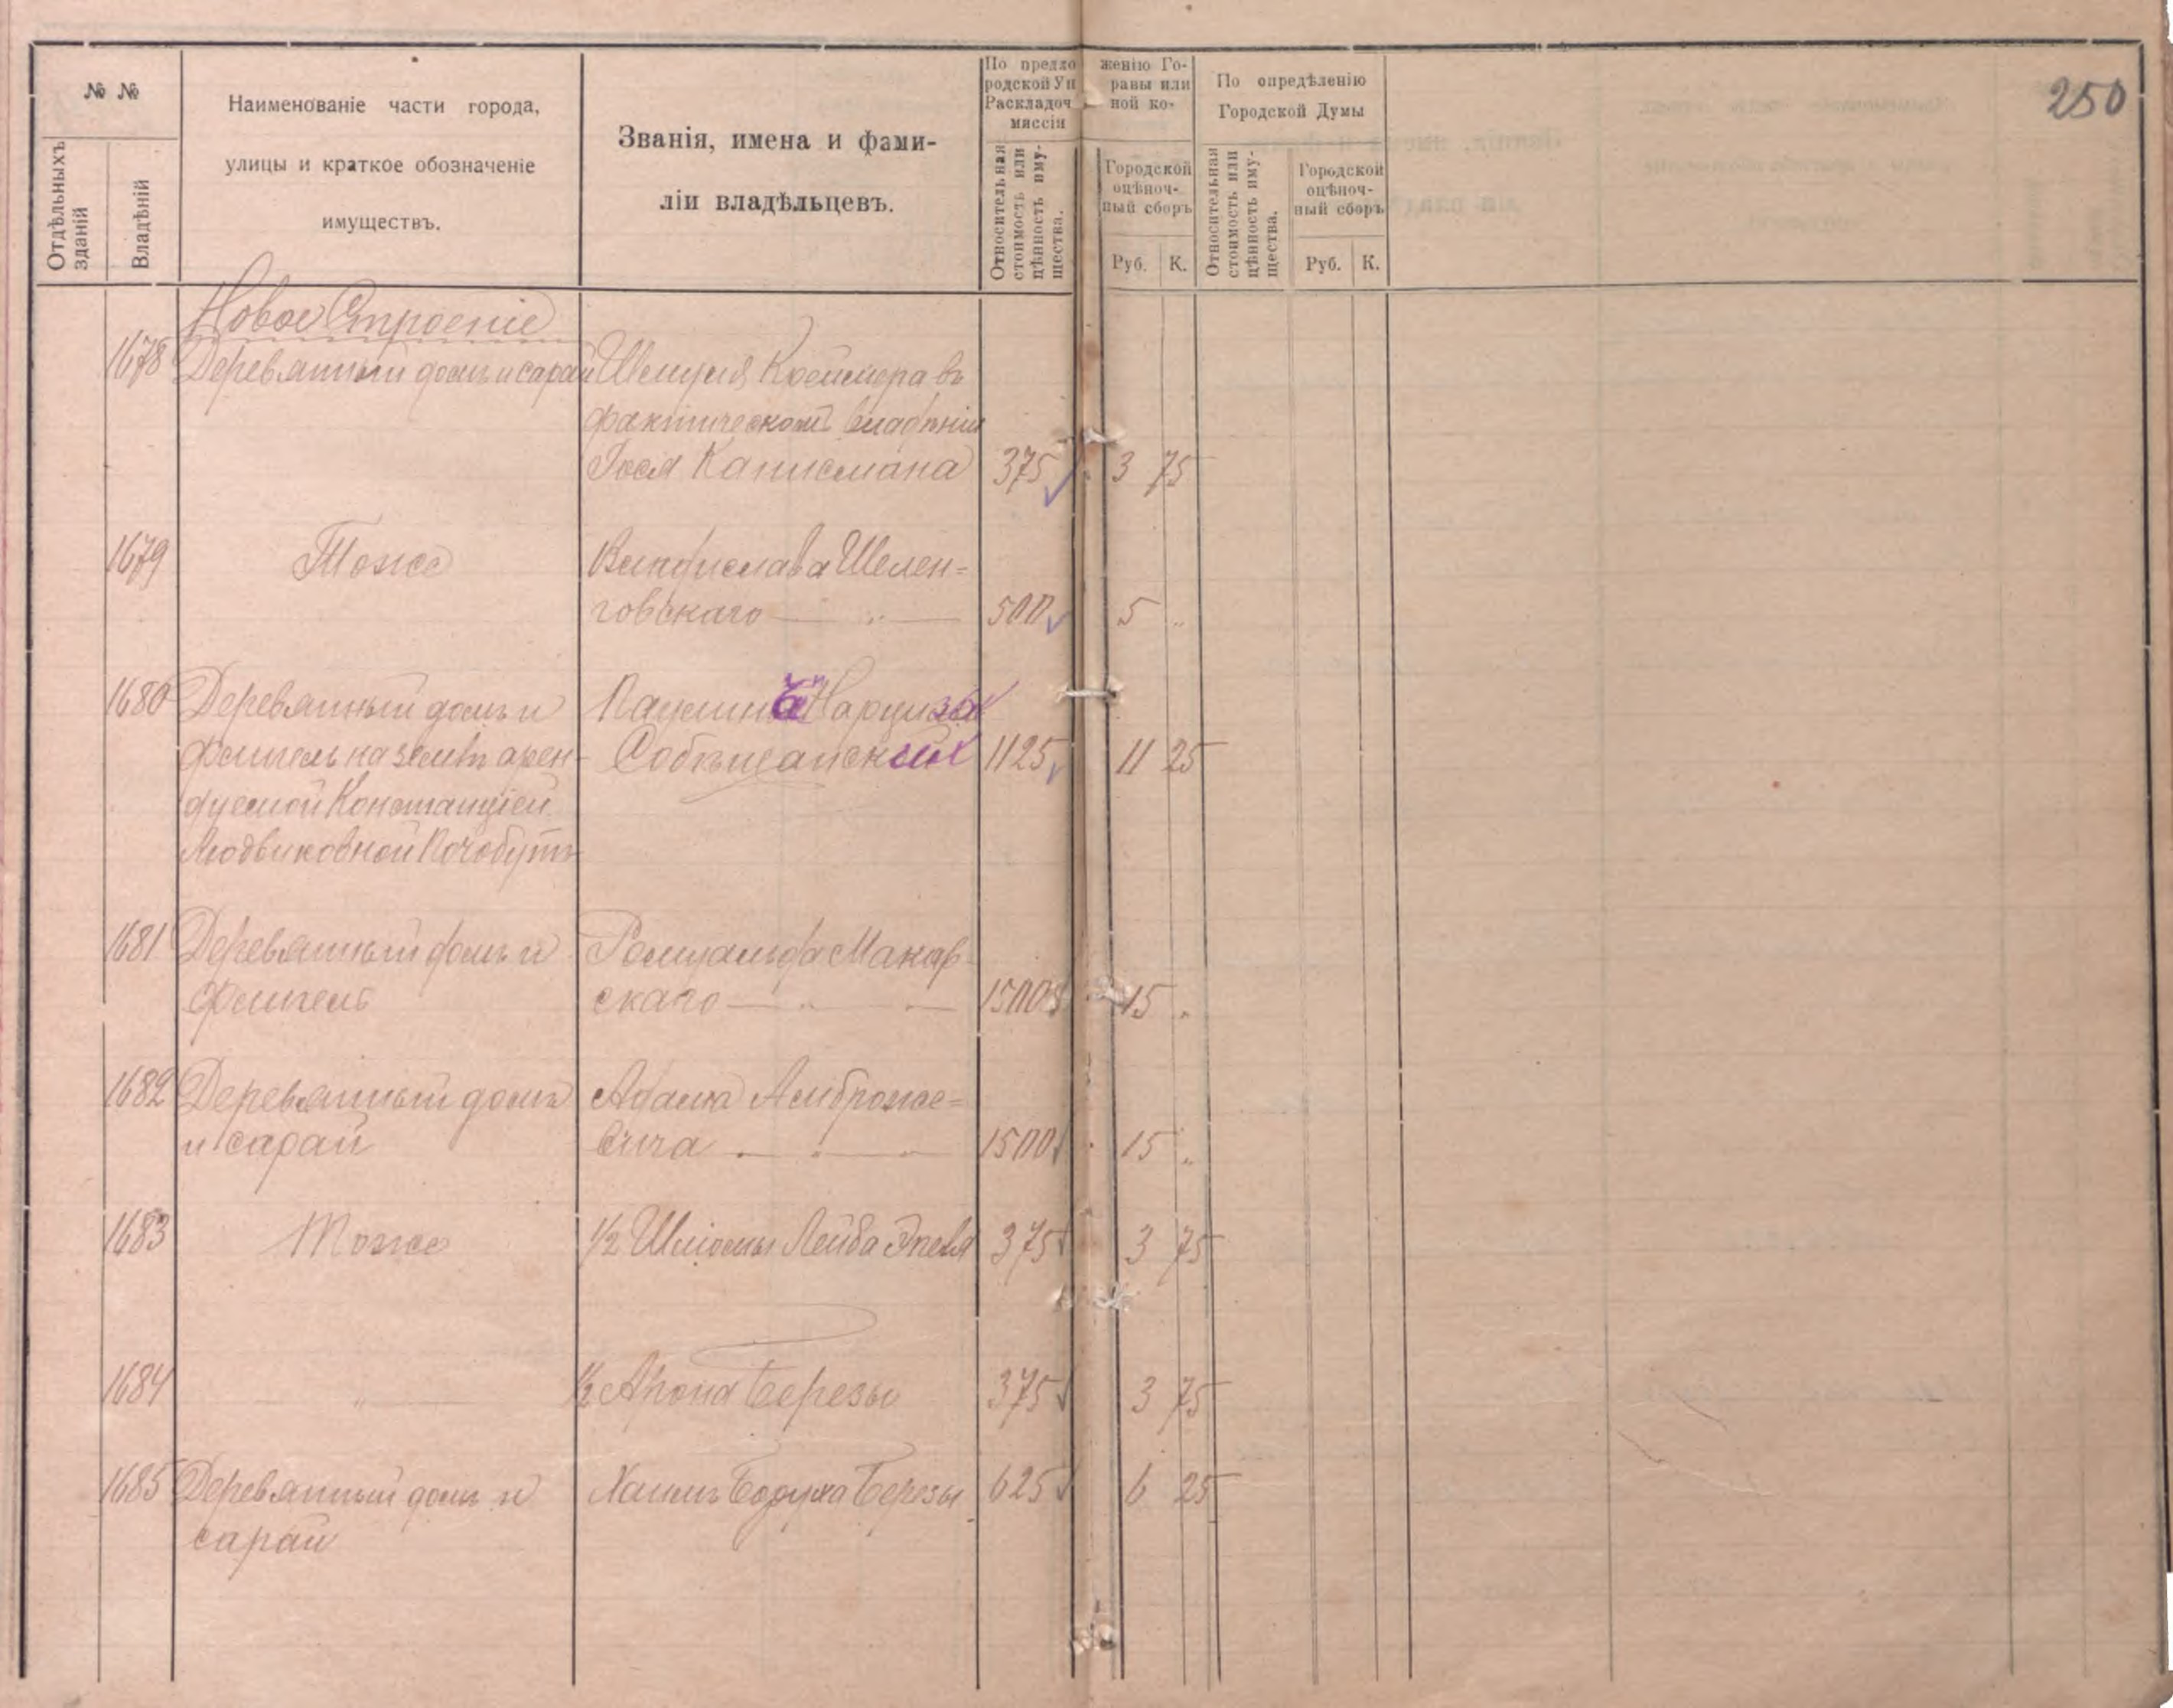 250
№ №
Отдѣльныхъ зданій
Владѣній
Наименованіе части города,
улицы и краткое обозначеніе
имуществъ.
Званія, имена и фами-
ліи владѣльцевъ.
По предло женію Го-
родской Уп равы или
Раскладоч ной ко-
миссіи
Относительная стоимость или цѣнность иму- щества.
Городской
оцѣноч-
ный сборъ
Руб. К.
По опредѣленію
Городской Думы
Относительная стоимость или цѣнность иму- щества.
Городской
оцѣноч-
ный сборъ
Руб. К.
Новое Строеніе
1678 Деревянный домъ и сарай Шмуля въ
фактическомъ владѣніи
375 3 75
1679 Тоже Владислава Шелен-
говскаго — „ — 500 5 „
1680 Деревянный домъ и
флигель на землѣ арен-
дуемой Констанціей
Людвиковной Почобутъ
1125 11 25
1681 Деревянный домъ и Ромуальда Макар-
флигель скаго — „ — 1500 15 „
1682 Деревянный домъ Адама Амброже-
и сарай вича — „ — 1500 15 „
1683 Тоже 1/2 Шліомы Лейба 375 3 75
1684 — „ — 1/2 Арона Березы 375 3 75
1685 Деревянный домъ и Хаимъ Боруха Березы 625 6 25
сарай